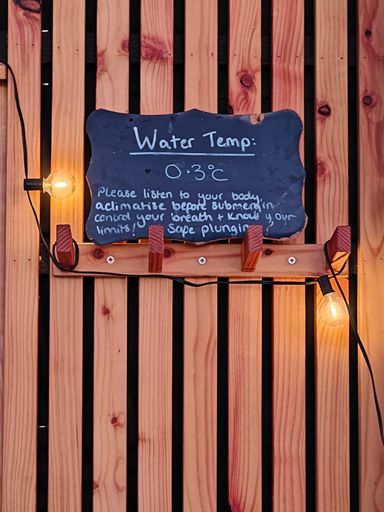 Water Temp:
0.3°C
Please listen to your body,
aclimatise before submergin
control your breath + know your
limits! Safe plunging!